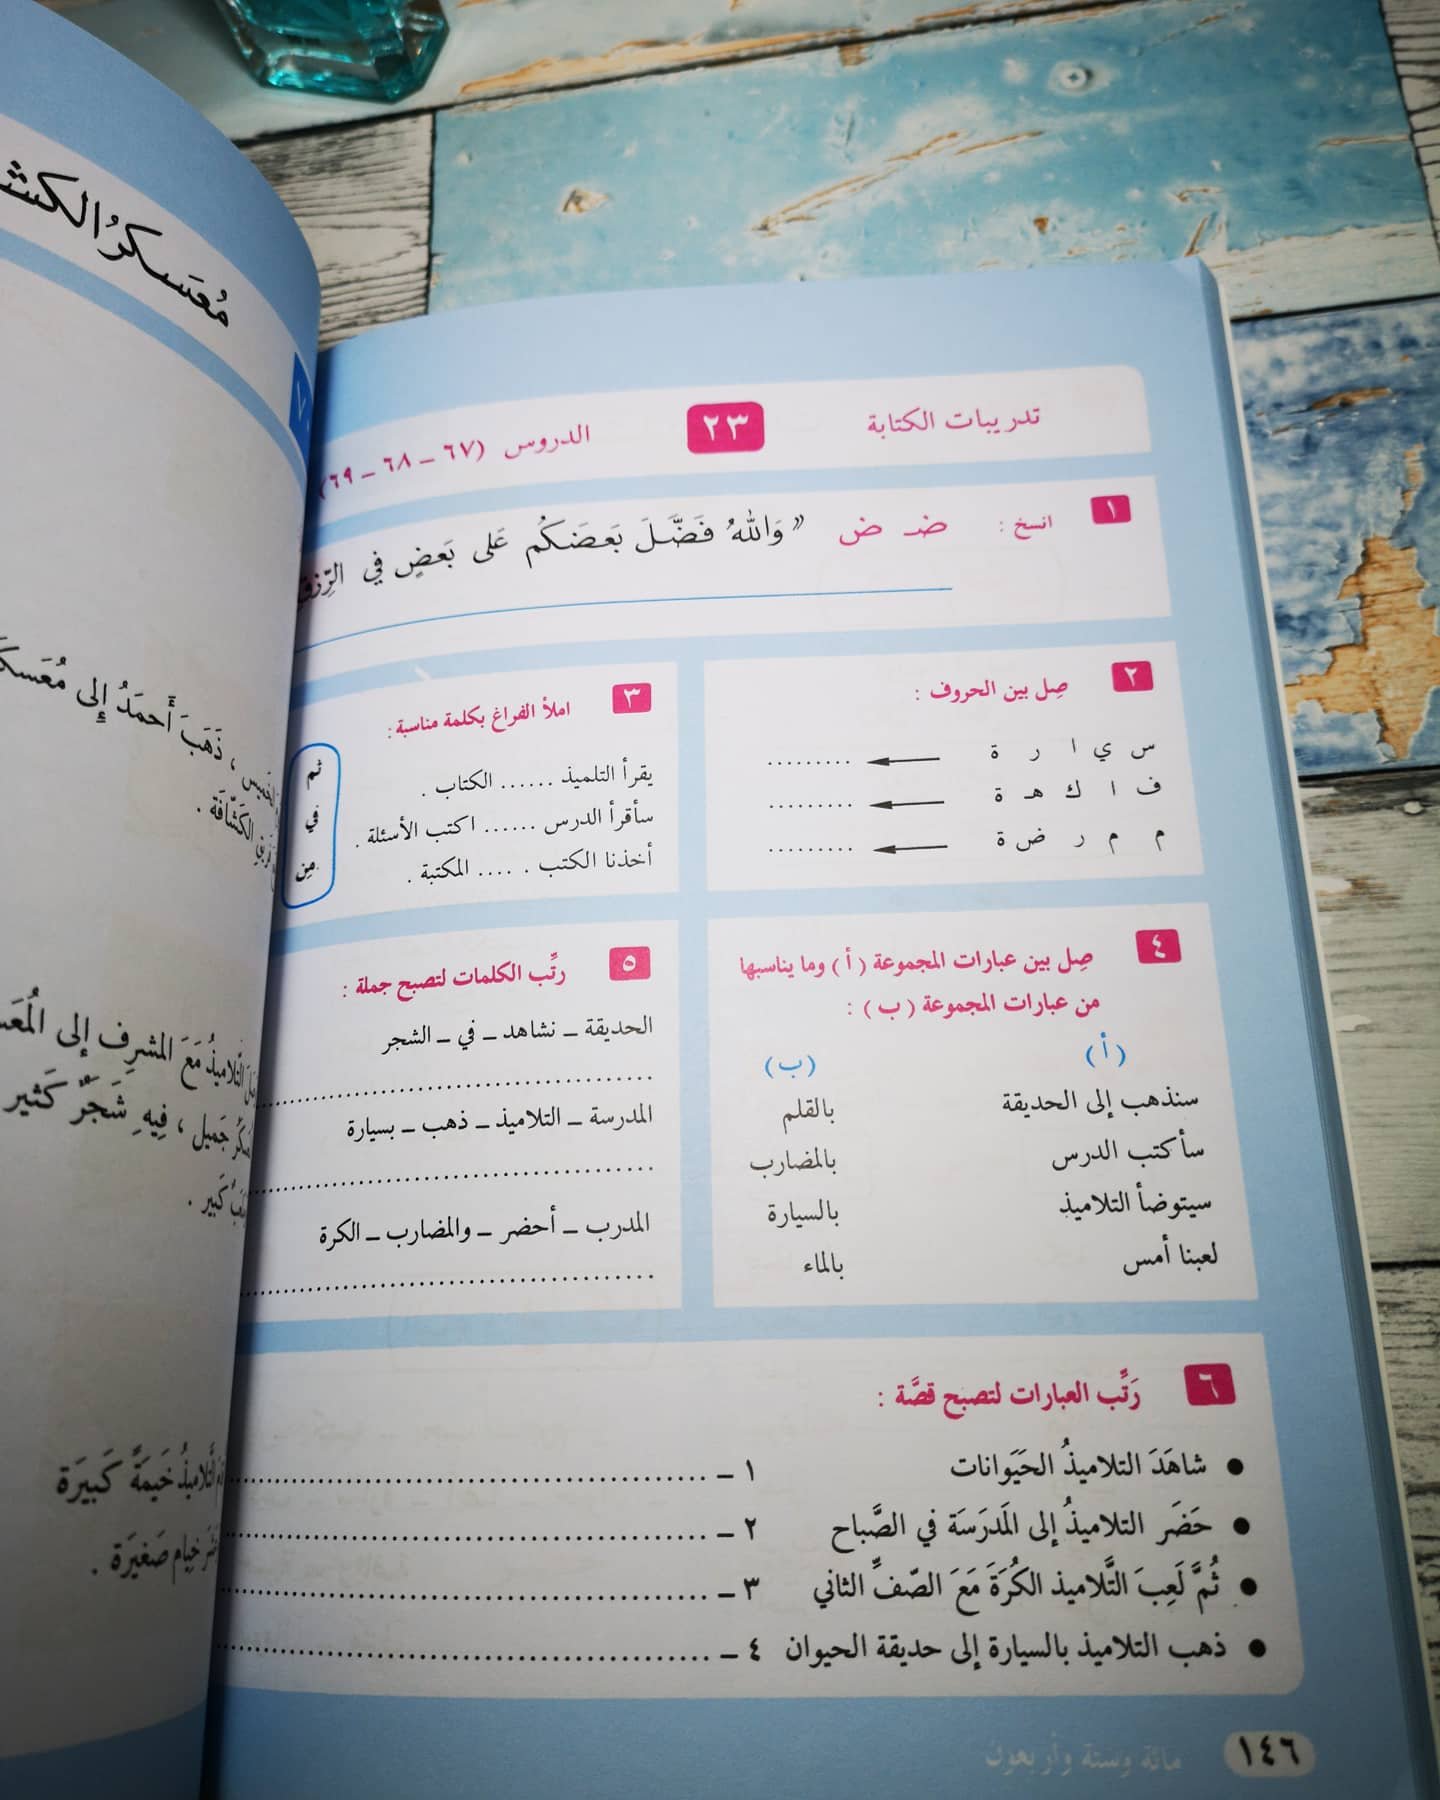 مُعَسكرُ
ذَهَبَ أَحمَدُ إِلى
الكَشّافَة .
التَّلاميذُ مَعَ المشرِف إِلى
جَميل ، فِيهِ شَجَرٌ كَثير
كَبير .
التَّلاميذُ خَيمَةً كَبيرَة
خِيام صَغيرَة .
تدريبات الكتابة
٢٣
الدروس (٦٧ ــ ٦٨ ــ ٦٩)
١
انسخ :
ضـ ض
« وَاللهُ فَضَّلَ بَعَضَكُم عَلى بَعضٍ في
٢
صِل بين الحروف :
س ي ا ر ة ← .........
ف ا ك هـ ة ← .........
م م ر ض ة ← .........
٣
املأ الفراغ بكلمة مناسبة :
يقرأ التلميذ ...... الكتاب .
سأقرأ الدرس ...... اكتب الأسئلة .
أخذنا الكتب . .... المكتبة .
ثم
في
من
٤
صِل بين عبارات المجموعة ( أ ) وما يناسبها
من عبارات المجموعة ( ب ) :
( أ ) ( ب )
سنذهب إلى الحديقة بالقلم
سأكتب الدرس بالمضارب
سيتوضأ التلاميذ بالسيارة
لعبنا أمس بالماء
٥
رتِّب الكلمات لتصبح جملة :
الحديقة ــ نشاهد ــ في ــ الشجر
المدرسة ــ التلاميذ ــ ذهب ــ بسيارة
المدرب ــ أحضر ــ والمضارب ــ الكرة
٦
رَتِّب العبارات لتصبح قصَّة :
● شاهَدَ التلاميذُ الحَيَوانات ١ ــ
● حَضَر التلاميذُ إلى المَدرَسَة في الصَّباح ٢ ــ
● ثُمَّ لَعِبَ التَّلاميذ الكُرَةَ مَعَ الصّفِّ الثاني ٣ ــ
● ذهب التلاميذ بالسيارة إلى حديقة الحيوان ٤ ــ
١٤٦
مائة وستة وأربعون